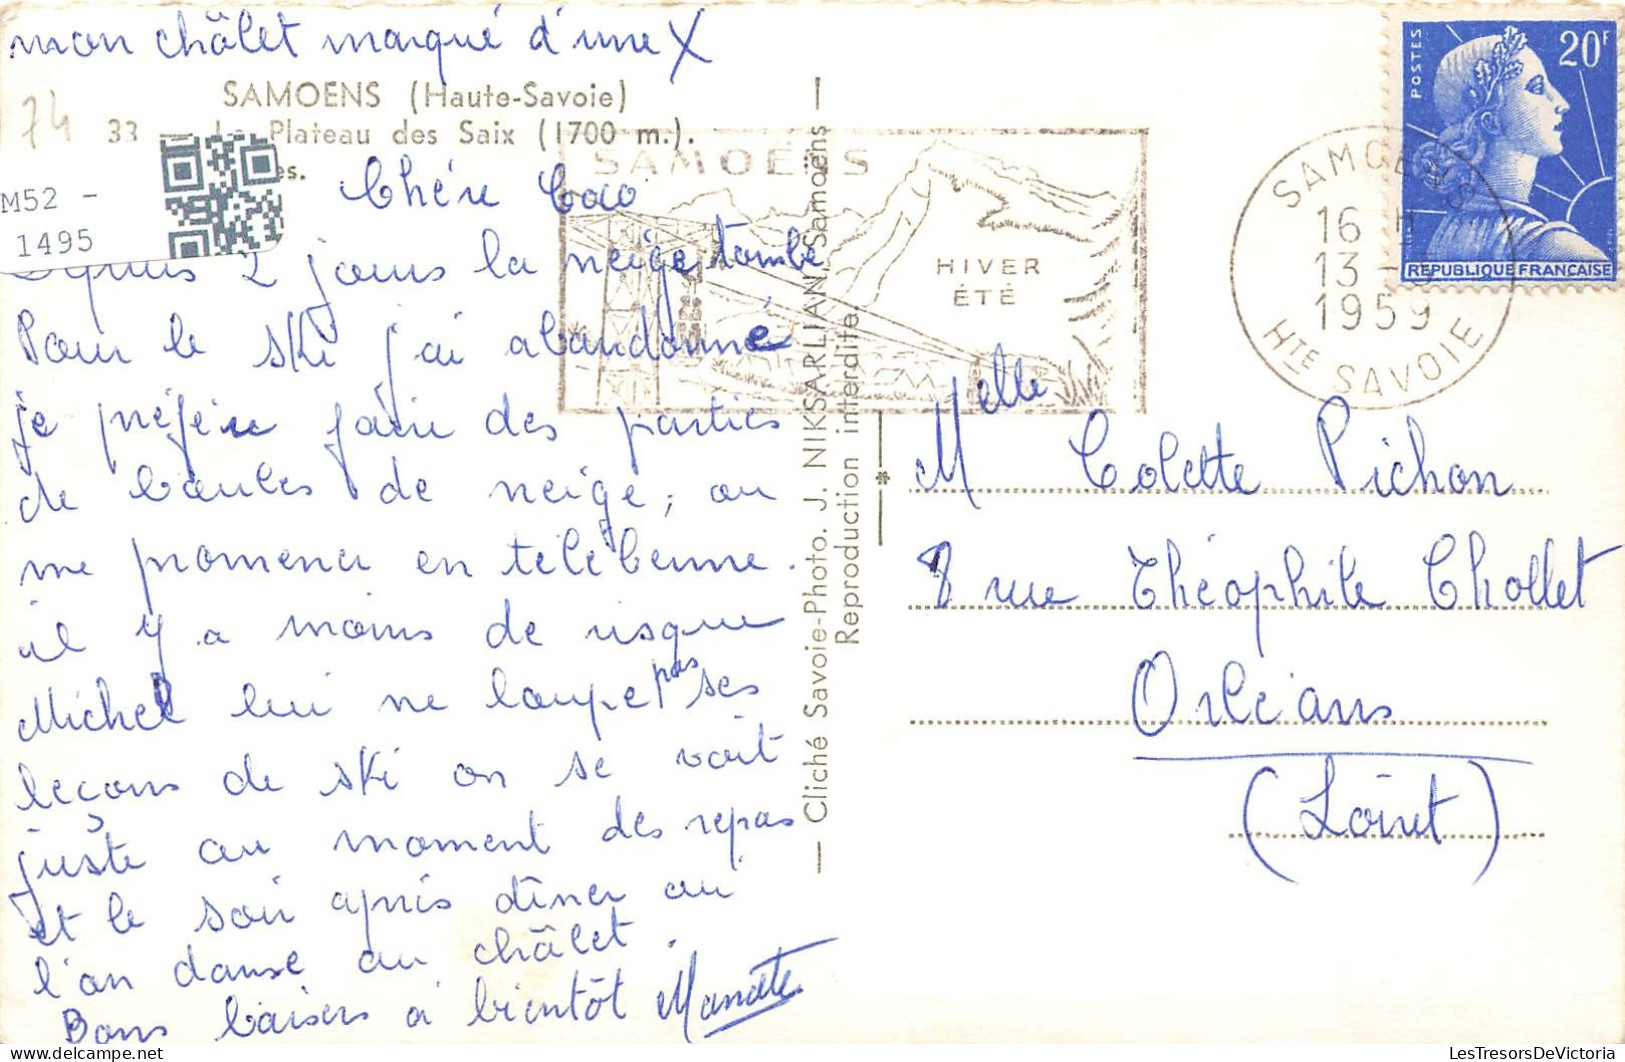 mon châlet marqué d'une X
SAMOENS (Haute-Savoie)
74
33 — Le Plateau des Saix (1700 m.).
es.
M52 -
1495
Chére Coco
Depuis 2 jours la neige tombe
Pour le ski j'ai abandonné
je préfère faire des parties
de boules de neige, ou
me promener en télébenne.
il y a moins de risque
Michel lui ne loupe pas ses
leçons de ski on se voit
juste au moment des repas
et le soir après dîner au
l'on danse au châlet.
Bons baisers à bientôt
— Cliché Savoie-Photo. J. NIKSARLIAN, Samoëns —
Reproduction interdite.
SAMOËNS
HIVER
ÉTÉ
SAMOENS
16 H
13 -
1959
HTE SAVOIE
POSTES
20F
REPUBLIQUE FRANÇAISE
Melle
M Colette Pichon
8 rue Théophile Chollet
Orléans
(Loiret)
LesTresorsDeVictoria
delcampe.net